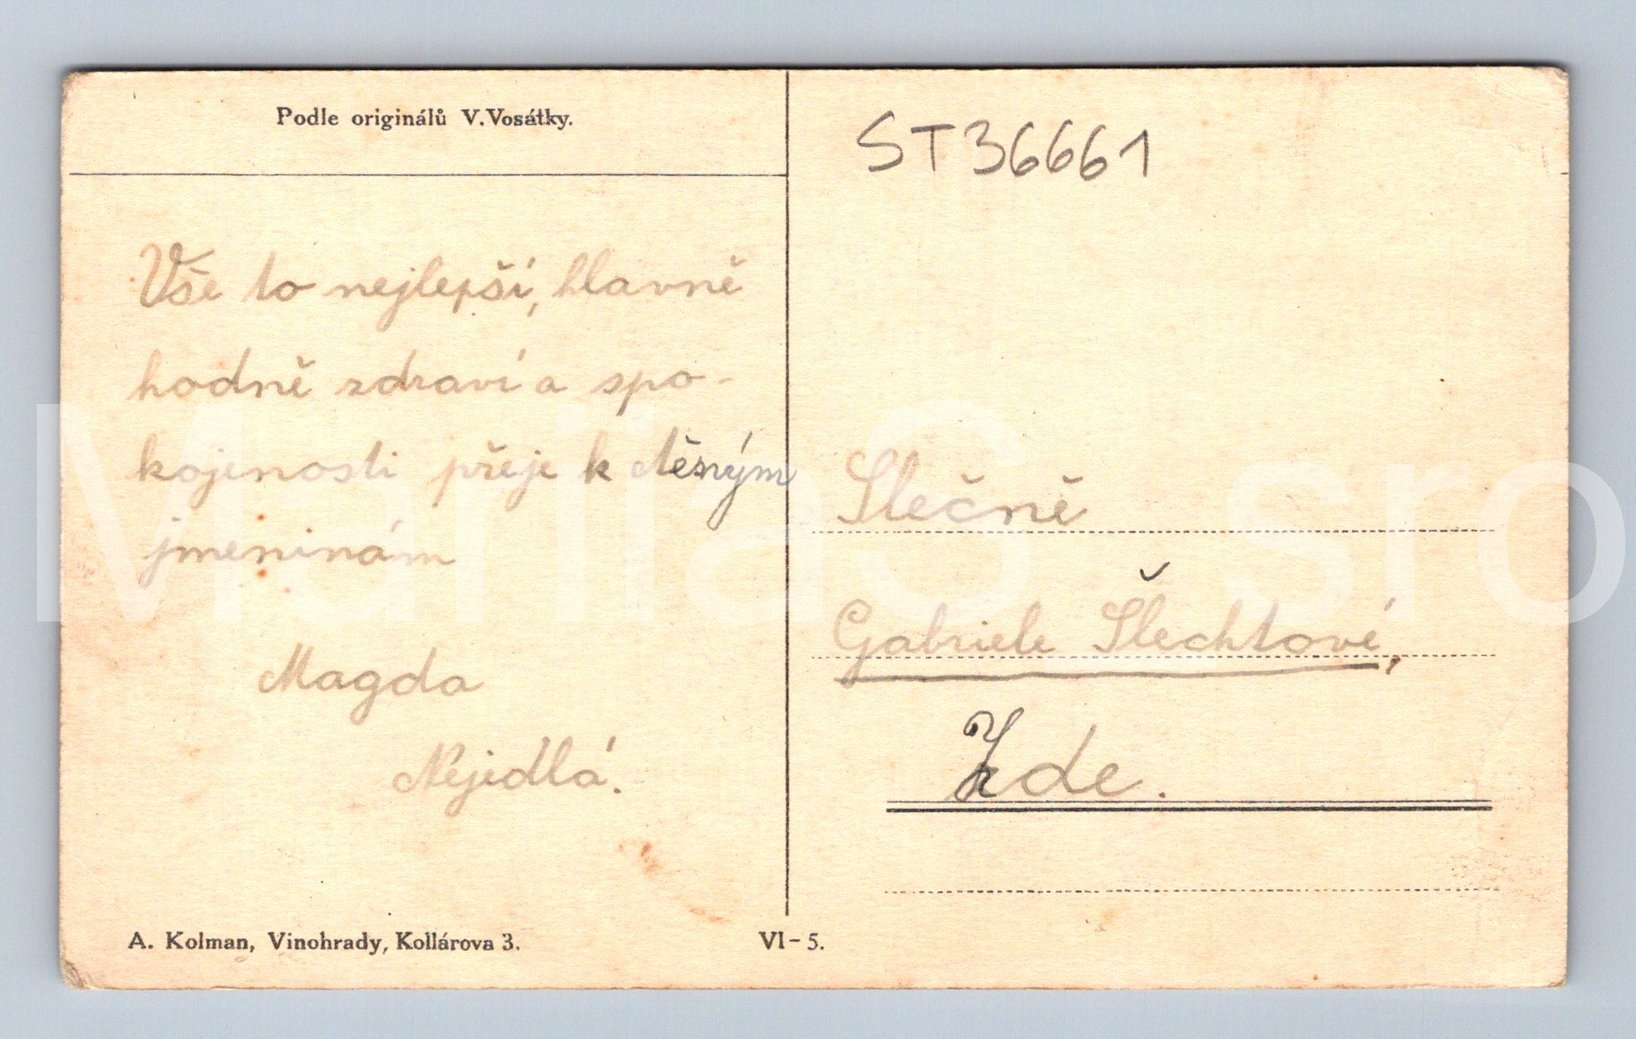 Podle originálů V. Vosátky.
Vše to nejlepší, hlavně
hodně zdraví a spo-
kojenosti přeje k
jmeninám
Magda
Nejidlá.
A. Kolman, Vinohrady, Kollárova 3.
VI-5.
ST36661
Slečně
Gabriele Šlechtové,
Zde.